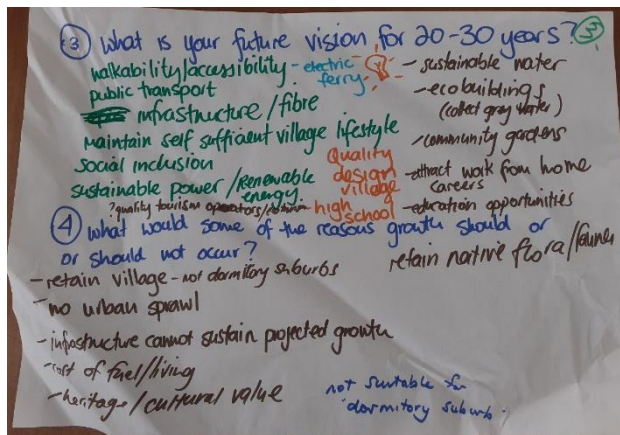 ③ What is your future vision for 20-30 years? ③
walkability/accessibility - electric ferry
public transport
infrastructure/fibre
Maintain self sufficient village lifestyle
Social inclusion
sustainable power/Renewable energy
?quality tourism operators/
Quality
design
village
high school
- sustainable water
- ecobuildings
(collect grey water)
- community gardens
- attract work from home
careers
- education opportunities
④ What would some of the reasons growth should or
or should not occur?
- retain village - not dormitory suburbs
- no urban sprawl
- infrastructure cannot sustain projected growth
- cost of fuel/living
- heritage/cultural value
retain native flora/fauna
not suitable for
dormitory suburb